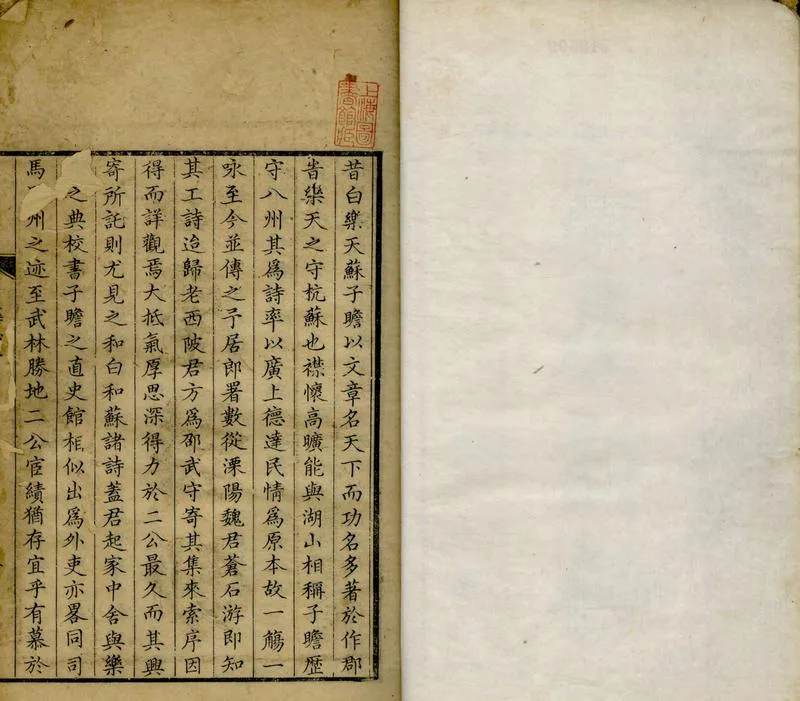 上海圖書館藏
昔白樂天蘇子瞻以文章名天下而功名多著於作郡
旹樂天之守杭蘇也襟懷高曠能與湖山相稱子瞻歷
守八州其爲詩率以廣上德達民情爲原本故一觴一
咏至今並傳之予居郎署數從溧陽魏君蒼石游卽知
其工詩迨歸老西陂君方爲邵武守寄其集來索序因
得而詳觀焉大抵氣厚思深得力於二公最久而其興
寄所託則尤見之和白和蘇諸詩蓋君起家中舍與樂
之典校書子瞻之直史館相似出爲外吏亦畧同司
馬州之迹至武林勝地二公宦績猶存宜乎有慕於